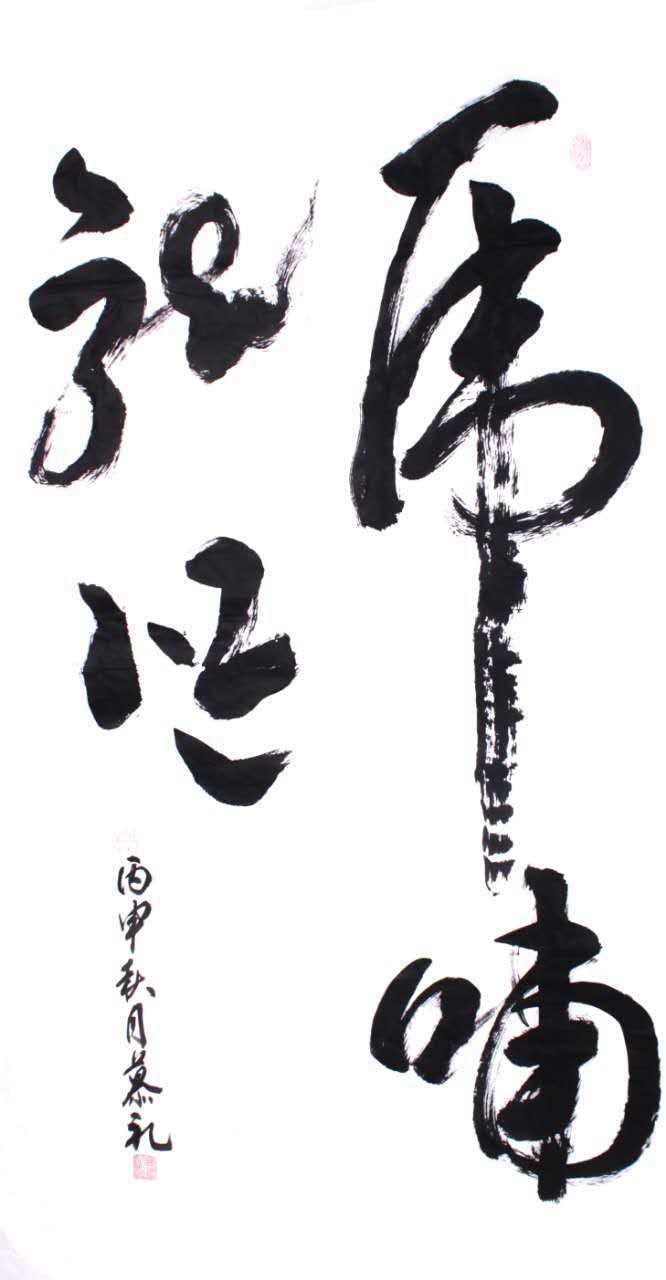 虎嘯
龍吟
丙申秋月慕礼